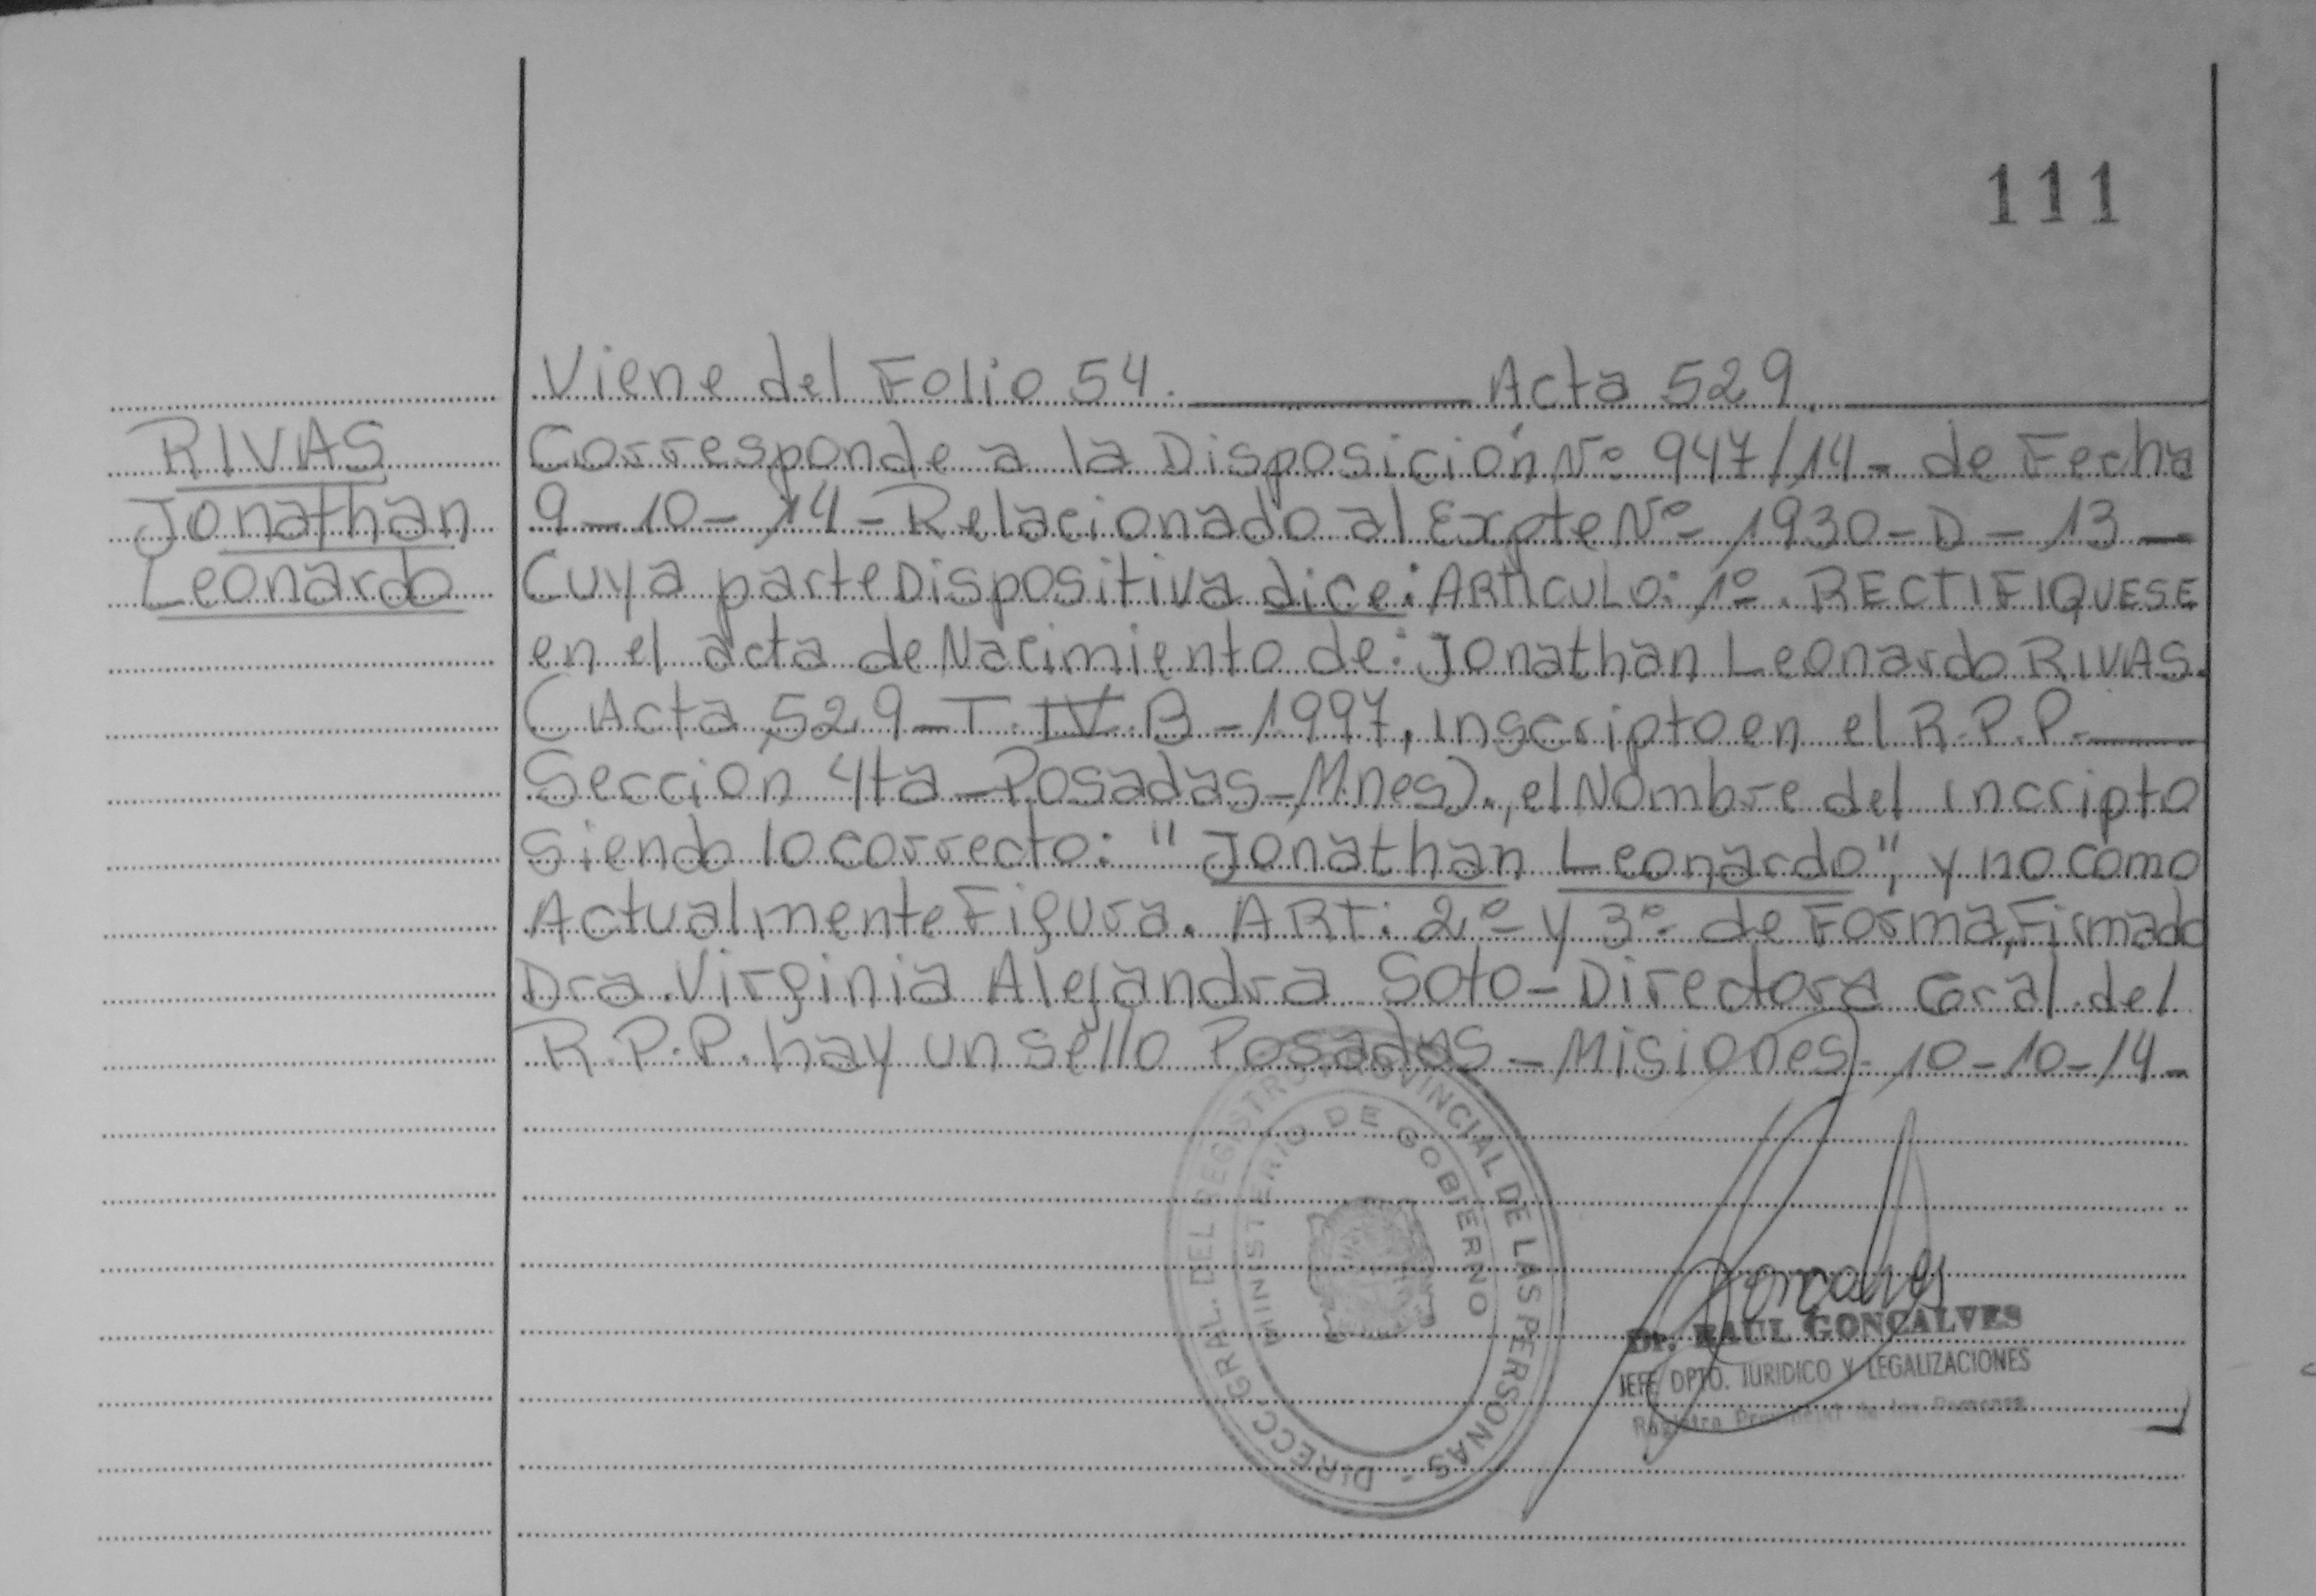 111
Viene del Folio 54. Acta 529.
RIVAS
Jonathan
Leonardo
Corresponde a la Disposición Nº 947/14- de Fecha
9-10-14- Relacionado al Expte Nº 1930-D-13-
Cuya parte Dispositiva dice: ARTICULO: 1º. RECTIFIQUESE
en el acta de Nacimiento de: Jonathan Leonardo RIVAS.
(Acta 529-T-IV.B-1997, inscripto en el R.P.P.
Sección 4ta-Posadas-Mnes)., el Nombre del incripto
siendo lo correcto: "Jonathan Leonardo", y no como
Actualmente Figura. ART: 2º y 3º de Forma, Firmado
Dra. Virginia Alejandra Soto-Directora Gral. del
R.P.P. hay un sello Posadas-Misiones-10-10-14-
DIRECC. GRAL. DEL REGISTRO PROVINCIAL DE LAS PERSONAS -
MINISTERIO DE GOBIERNO
Goncalves
Dr. RAUL GONCALVES
JEFE DPTO. JURIDICO Y LEGALIZACIONES
Registro Provincial de las Personas